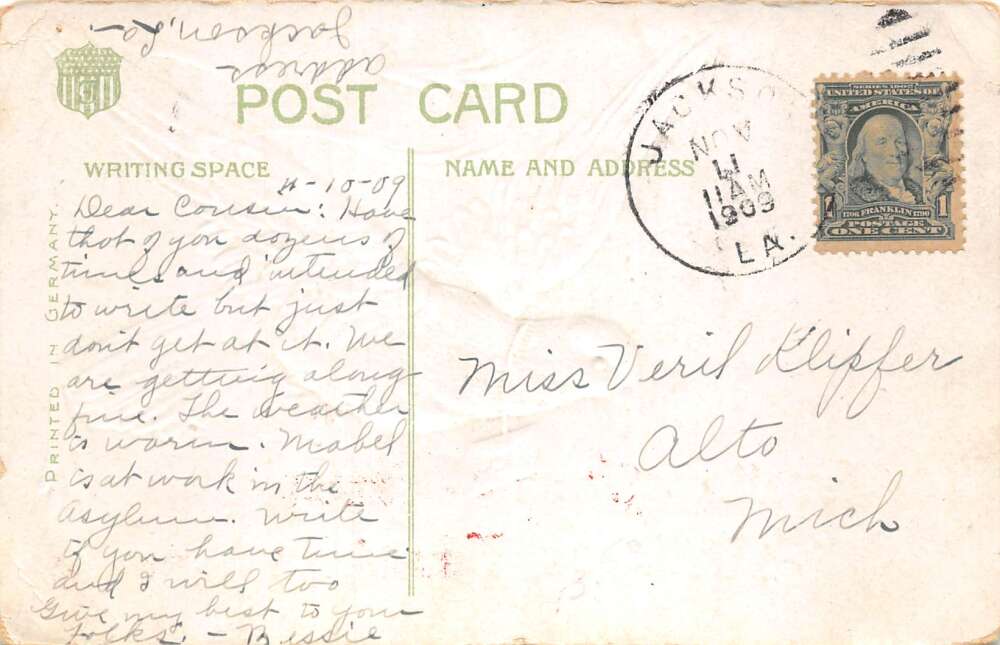 address
Jackson, La.
POST CARD
WRITING SPACE
NAME AND ADDRESS
PRINTED IN GERMANY.
11-10-09
Dear Cousin: Have
thot of you dozens of
times and intended
to write but just
don't get at it. We
are getting along
fine. The weather
is warm. Mabel
is at work in the
Asylum. Write
if you have time
and I will too
Give my best to your
folks. - Bessie
JACKSO
NOV
11
11 AM
1909
LA.
SERIES 1902
UNITED STATES OF
AMERICA
1706 FRANKLIN 1790
1 1
POSTAGE
ONE CENT
Miss Veril Klipfer
Alto
Mich